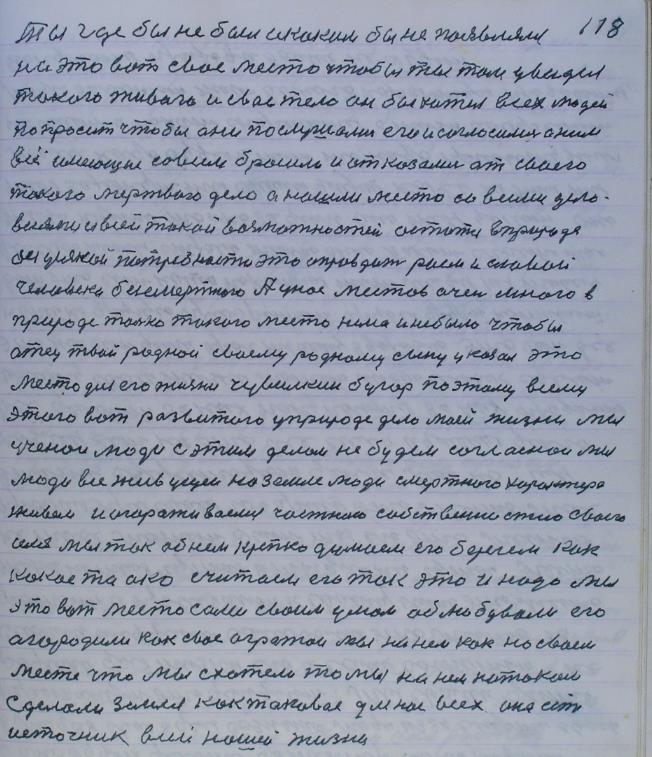 118
Ты где бы не был и каким бы не появлялся
на это вот свое место чтобы ты там увидел
такого живаго и свае тело он бы хотил всех людей
попросит чтобы они послушали его и согласились с ним
всё имеющие совсем бросили и отказались ат своего
такого мертваго дело а нашли место со всеми усло-
виями и всей такой возможностей остатся в природе
без усякой потребности это оправдат раем и славой
человека безсмертного А у нас местов очен много в
природе только такого место нема и небыло чтобы
отец твой родной своему родному сыну указал это
место для его жизни чувилкин бугор поэтому всему
этого вот развитого у природе дело маей жизни мы
ученои люди с этим делом не будем согласнои мы
люди все живущеи на земле люди смертного характера
живем и огараживаемся частною собственностию своего
имя мы так об нем крепко думаем его берегем как
какое та око считаем его так это и надо мы
это вот место сами своим умом аблюбували его
агородили как свое агратои мы на нем как на своем
месте что мы схотели то мы на нем на таком
сделали Земля как таковая для нас всех она есть
источник всей нашей жизни